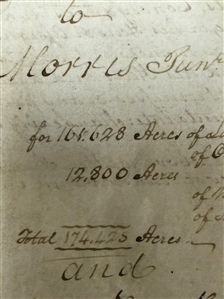 to
Morris Junr
for 161.628 Acres of
of
12.800 Acres
of
of
Total 174.428 Acres
and